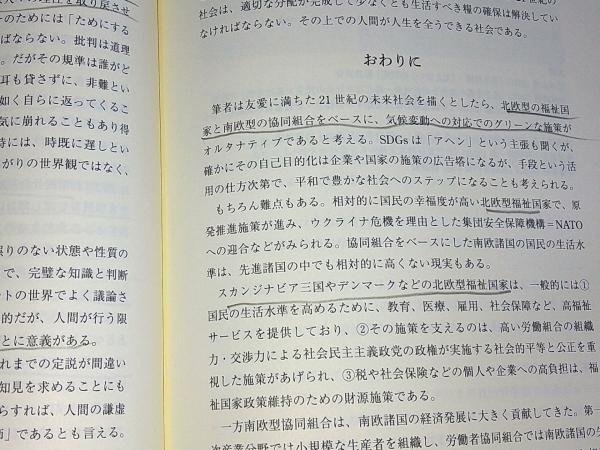 社会は、適切な分配が完成して少なくとも生活すべき糧の確保は解決してい
なければならない。その上での人間が人生を全うできる社会である。
おわりに
筆者は友愛に満ちた21世紀の未来社会を描くとしたら、北欧型の福祉国
家と南欧型の協同組合をベースに、気候変動への対応でのグリーンな施策が
オルタナティブであると考える。SDGsは「アヘン」という主張も聞くが、
確かにその自己目的化は企業や国家の施策の広告塔になるが、手段という活
用の仕方次第で、平和で豊かな社会へのステップになることも考えられる。
もちろん難点もある。相対的に国民の幸福度が高い北欧型福祉国家で、原
発推進施策が進み、ウクライナ危機を理由とした集団安全保障機構=NATO
への迎合などがみられる。協同組合をベースにした南欧諸国の国民の生活水
準は、先進諸国の中でも相対的に高くない現実もある。
スカンジナビア三国やデンマークなどの北欧型福祉国家は、一般的には①
国民の生活水準を高めるために、教育、医療、雇用、社会保障など、高福祉
サービスを提供しており、②その施策を支えるのは、高い労働組合の組織
力・交渉力による社会民主主義政党の政権が実施する社会的平等と公正を重
視した施策があげられ、③税や社会保険などの個人や企業への高負担は、福
祉国家政策維持のための財源施策である。
一方南欧型協同組合は、南欧諸国の経済発展に大きく貢献してきた。第一
次産業分野では小規模な生産者を組織し、労働者協同組合では南欧の
を取り戻させ
そのためには「ためにする
ればならない。批判は道理
る。だがその規準は誰がど
耳も貸さずに、非難とい
如く自らに返ってくるこ
気に崩れることもあり得
時には、時既に遅しとい
がりの世界観ではなく、
誤りのない状態や性質の
で、完璧な知識と判断
ットの世界でよく議論さ
的だが、人間が行う限
とに意義がある。
れまでの定説が間違い
知見を求めることにも
らすれば、人間の謙虚
」であるとも言える。